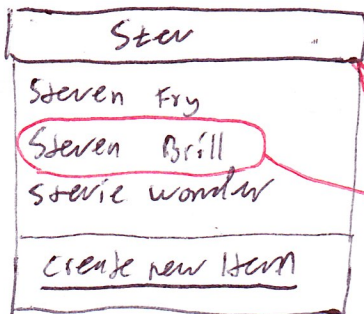 Stev
Steven Fry
Steven Brill
Stevie wonder
create new Item